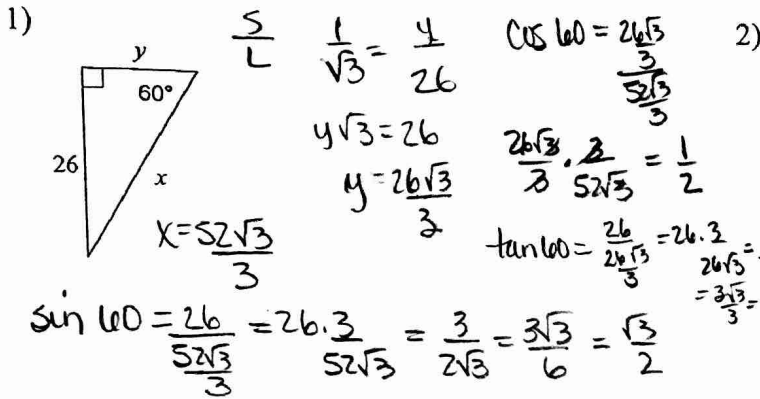 1)
y
60°
26
x
S/L
1/√3 = y/26
y√3 = 26
y = 26√3/3
x = 52√3/3
cos 60 = (26√3/3)/(52√3/3)
26√3/3 · 3/52√3 = 1/2
tan 60 = 26/(26√3/3) = 26·3/26√3 =
= 3√3/3 =
sin 60 = 26/(52√3/3) = 26·3/52√3 = 3/2√3 = 3√3/6 = √3/2
2)